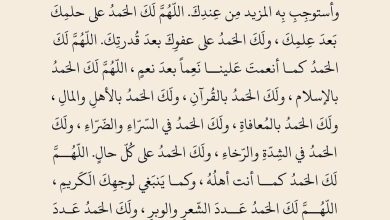 وأستوجِبِ بِه المزيد مِن عِندِكَ. اللّهُمَّ لَكَ الحَمدُ على حلمِكَ
بَعدَ عِلمِكَ ، ولَكَ الحَمدُ على عفوِكَ بعدَ قُدرتِكَ. اللّهُمَّ لَكَ
الحَمدُ كمـا أنعمتَ عَلينـا نَعِماً بعدَ نعمٍ ، اللّهُمَّ لَكَ الحَمدُ
بالإسلام ، ولَكَ الحَمدُ بالقُرآنِ ، ولَكَ الحَمدُ بالأهلِ والمالِ ،
ولَكَ الحَمدُ بالمُعافاةِ ، ولَكَ الحَمدُ في السّرّاءِ والضّرّاءِ ، ولَكَ
الحَمدُ في الشِدّةِ والرّخاءِ ، ولَكَ الحَمدُ على كُلّ حالٍ. اللّهُـــمَّ
لَكَ الحَمدُ كمـــا أنت أهلُهُ ، وكمـا يَنبَغي لوجهِكَ الَكَريمِ ،
اللّهُـــمَّ لَكَ الحَمدُ عَـــددَ الشّعرِ والوبرِ ، ولَكَ الحَمدُ عَـددَ